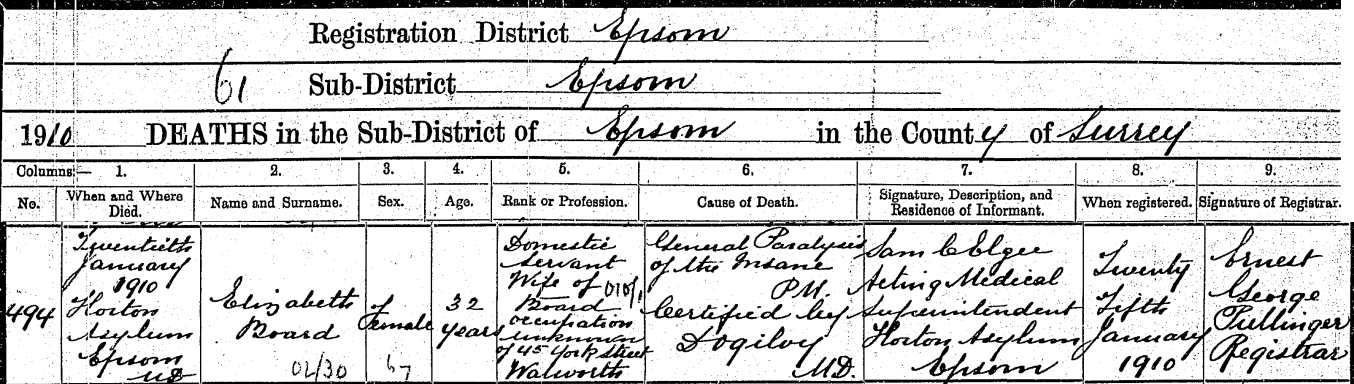 Registration District Epsom
61 Sub-District Epsom
1910 DEATHS in the Sub-District of Epsom in the County of Surrey
Columns:— 1. 2. 3. 4. 5. 6. 7. 8. 9.
No. When and Where Died. Name and Surname. Sex. Age. Rank or Profession. Cause of Death. Signature, Description, and Residence of Informant. When registered. Signature of Registrar.
494
Twentieth
January
1910
Horton
Asylum
Epsom
U.D
Elizabeth
Board
02/30
Female
67
32
years
Domestic
Servant
Wife of
Board
occupation
unknown
of 45 York Street
Walworth
General Paralysis
of the Insane
P.M.
Certified by
D Ogilvy
M.D.
Sam C Elgee
Acting Medical
Superintendent
Horton Asylum
Epsom
Twenty
Fifth
January
1910
Ernest
George
Pullinger
Registrar